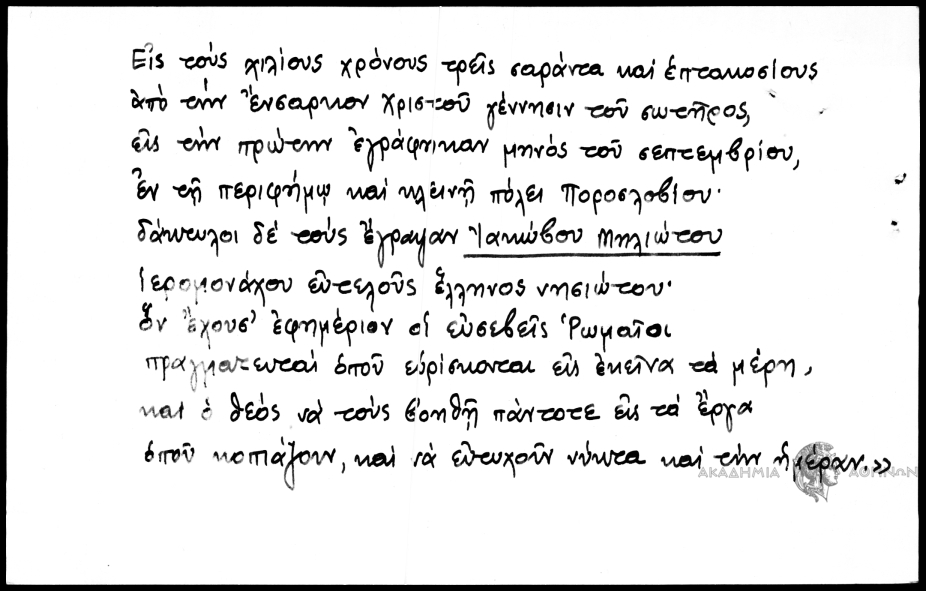 Εἰς τοὺς χιλίους χρόνους τρεῖς σαράντα καὶ ἑπτακοσίους
ἀπὸ τὴν ἔνσαρκον Χριστοῦ γέννησιν τοῦ σωτῆρος,
εἰς τὴν πρώτην ἐγράφηκαν μηνὸς τοῦ σεπτεμβρίου,
ἐν τῇ περιφήμῳ καὶ κλεινῇ πόλει Ποροσλοβίου·
δάκτυλοι δὲ τοὺς ἔγραψαν Ἰακώβου Μηλιώτου
Ἱερομονάχου εὐτελοῦς ἕλληνος νησιώτου·
ὃν ἔχουσ' ἐφημέριον οἱ εὐσεβεῖς Ῥωμαῖοι
πραγματευταὶ ὁποῦ εὑρίσκονται εἰς ἐκεῖνα τὰ μέρη,
καὶ ὁ θεὸς νὰ τοὺς βοηθῇ πάντοτε εἰς τὰ ἔργα
ὁποῦ κοπιάζουν, καὶ νὰ εὐτυχοῦν νύκτα καὶ τὴν ἡμέραν.»
ΑΚΑΔΗΜΙΑ ΑΘΗΝΩΝ